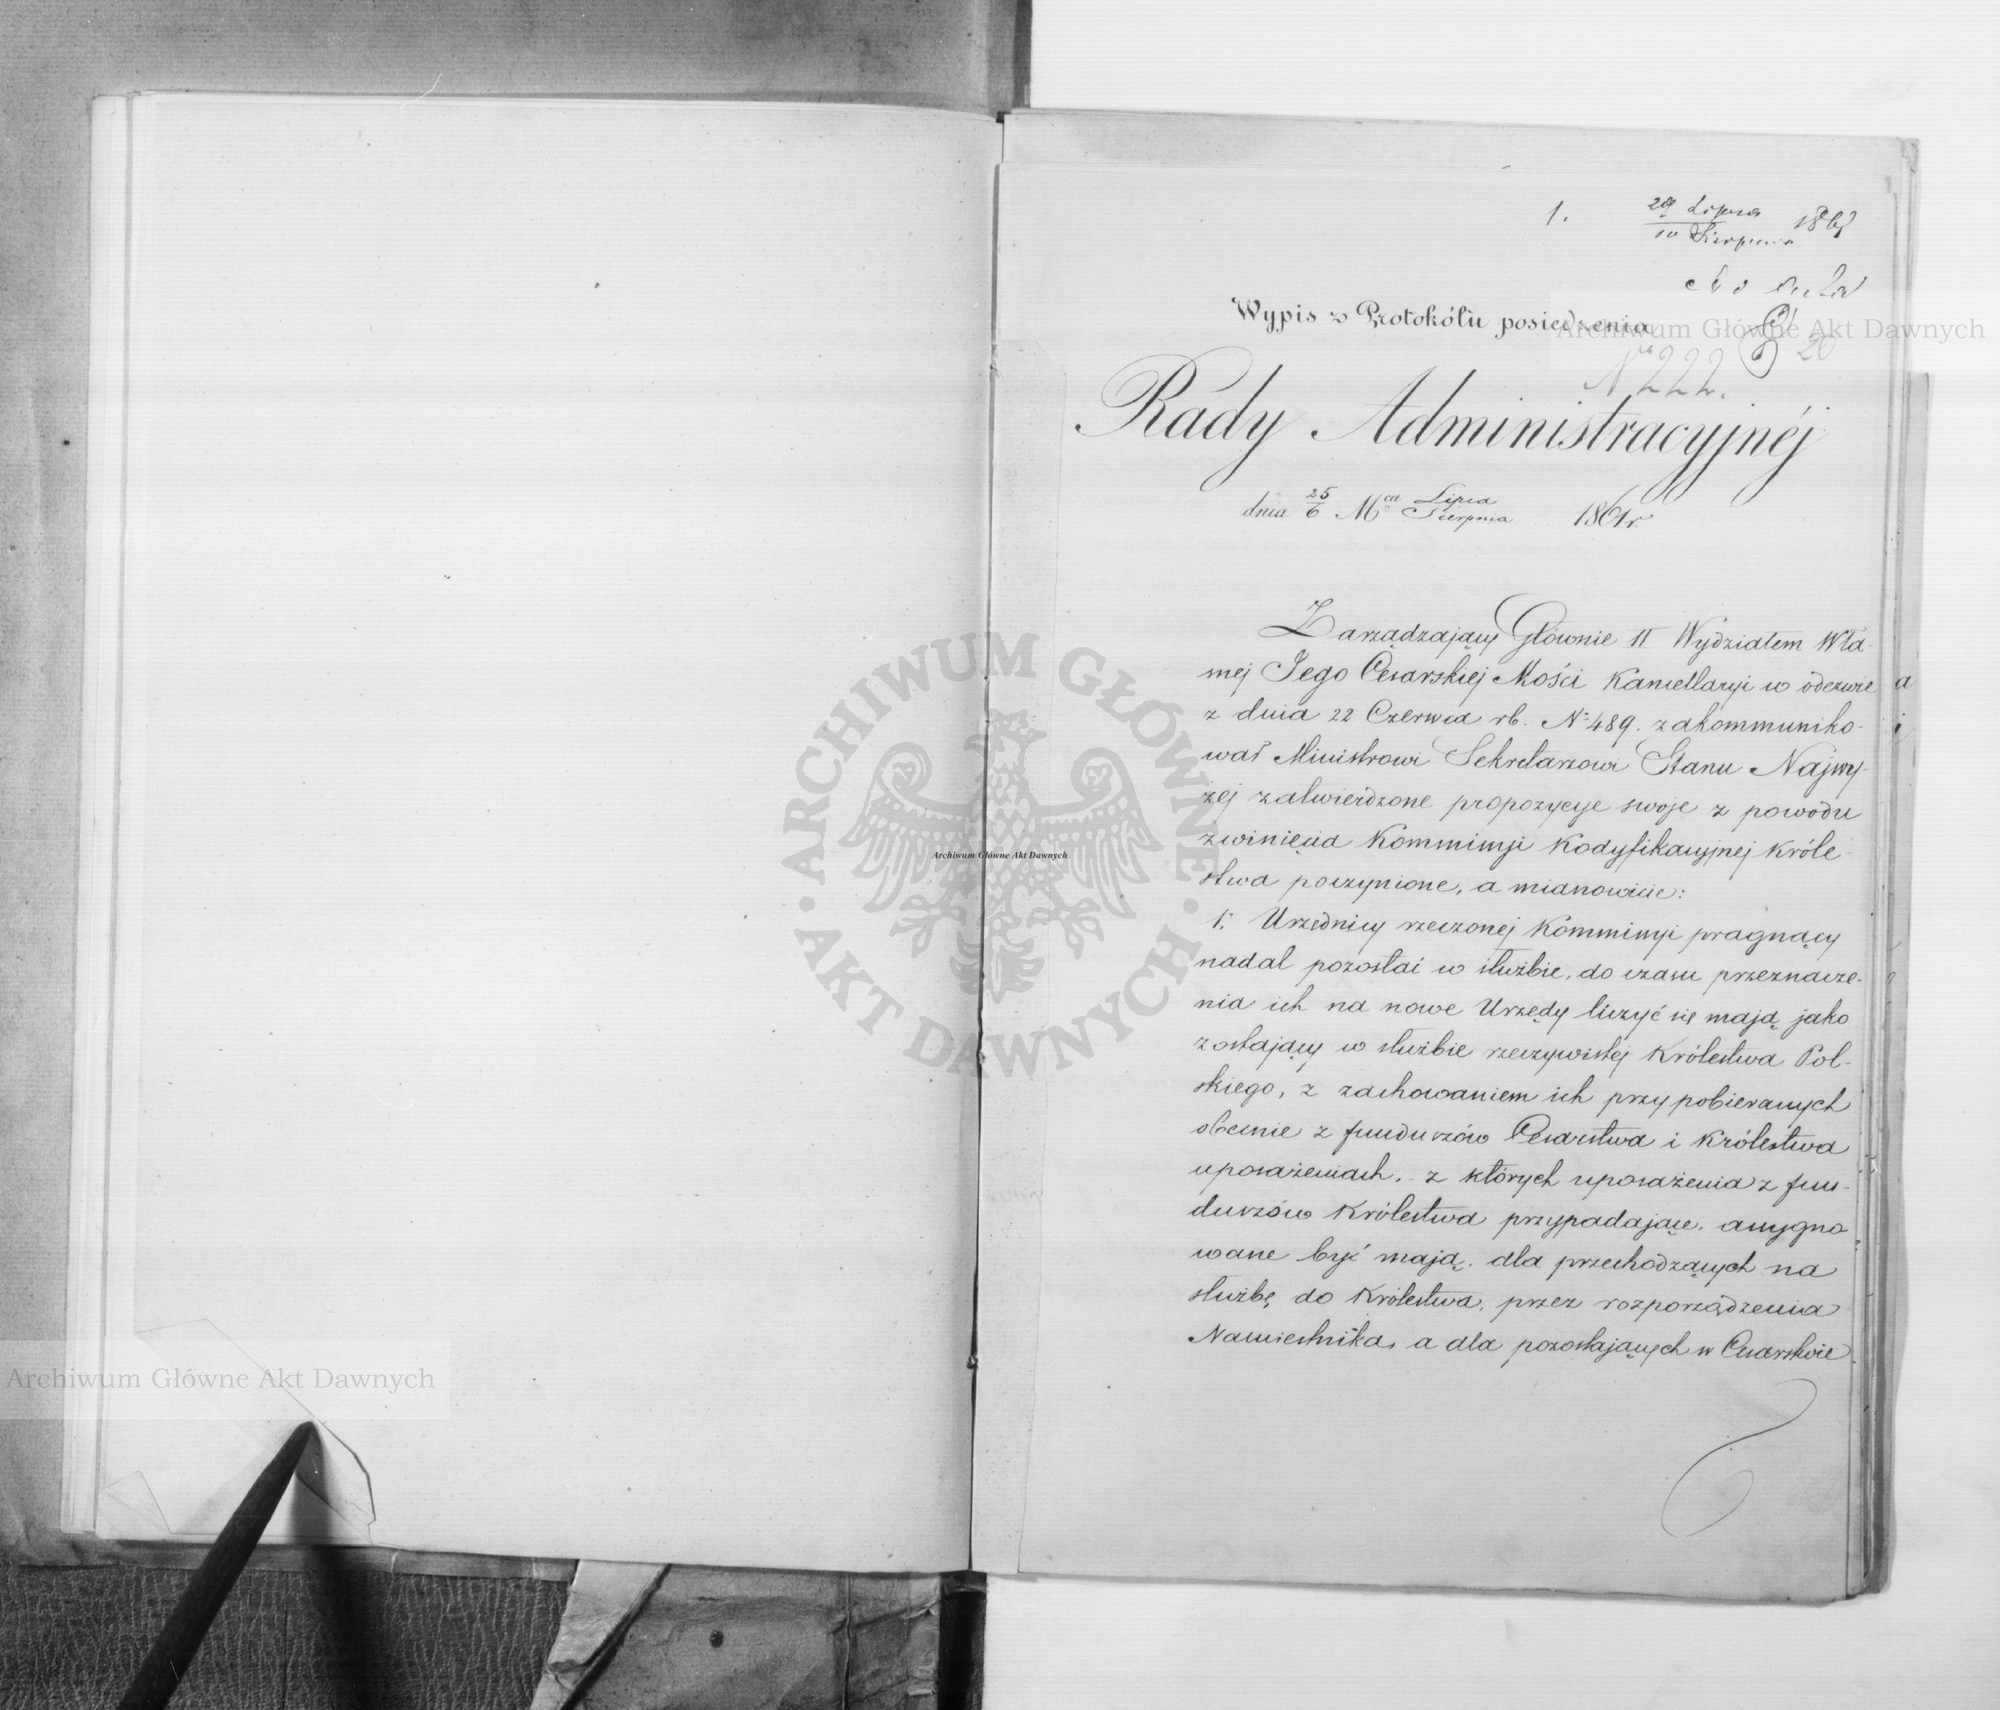 1.
29 Lipca
10 Sierpnia 1861
Wypis z Protokółu posiedzenia
20
No 222.
Rady Administracyjnéj
dnia 25/6 Mca Lipca/Sierpnia 1861 r.
Zarządzający Głównie II Wydziałem Wła-
snej Jego Cesarskiej Mości Kancellaryi w odezwie
z dnia 22 Czerwca rb. No 489. zakommuniko-
wał Ministrowi Sekretarzowi Stanu Najwy-
żej zatwierdzone propozycye swoje z powodu
zwinięcia Kommissyi Kodyfikacyjnej Króle-
stwa poczynione, a mianowicie:
1. Urzędnicy rzeczonej Kommissyi pragnący
nadal pozostać w służbie, do czasu przeznacze-
nia ich na nowe Urzędy liczyć się mają jako
zostający w służbie rzeczywistej Królestwa Pol-
skiego, z zachowaniem ich przy pobieranych
obecnie z funduszów Cesarstwa i Królestwa
uposażeniach, z których uposażenia z fun-
duszów Królestwa przypadające, assygno
wane być mają, dla przechodzących na
służbę do Królestwa, przez rozporządzenia
Namiestnika, a dla pozostających w Cesarstwie
a
i
Archiwum Główne Akt Dawnych
Archiwum Główne Akt Dawnych
Archiwum Główne Akt Dawnych
ARCHIWUM GŁÓWNE
AKT DAWNYCH